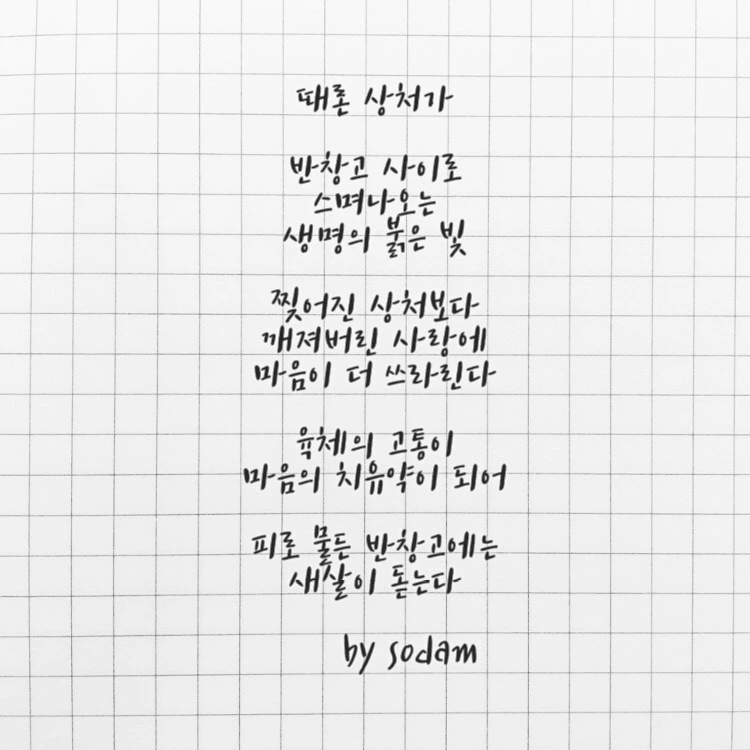 때론 상처가
반창고 사이로
스며나오는
생명의 붉은 빛
찢어진 상처보다
깨져버린 사랑에
마음이 더 쓰라린다
육체의 고통이
마음의 치유약이 되어
피로 물든 반창고에는
새살이 돋는다
by sodam